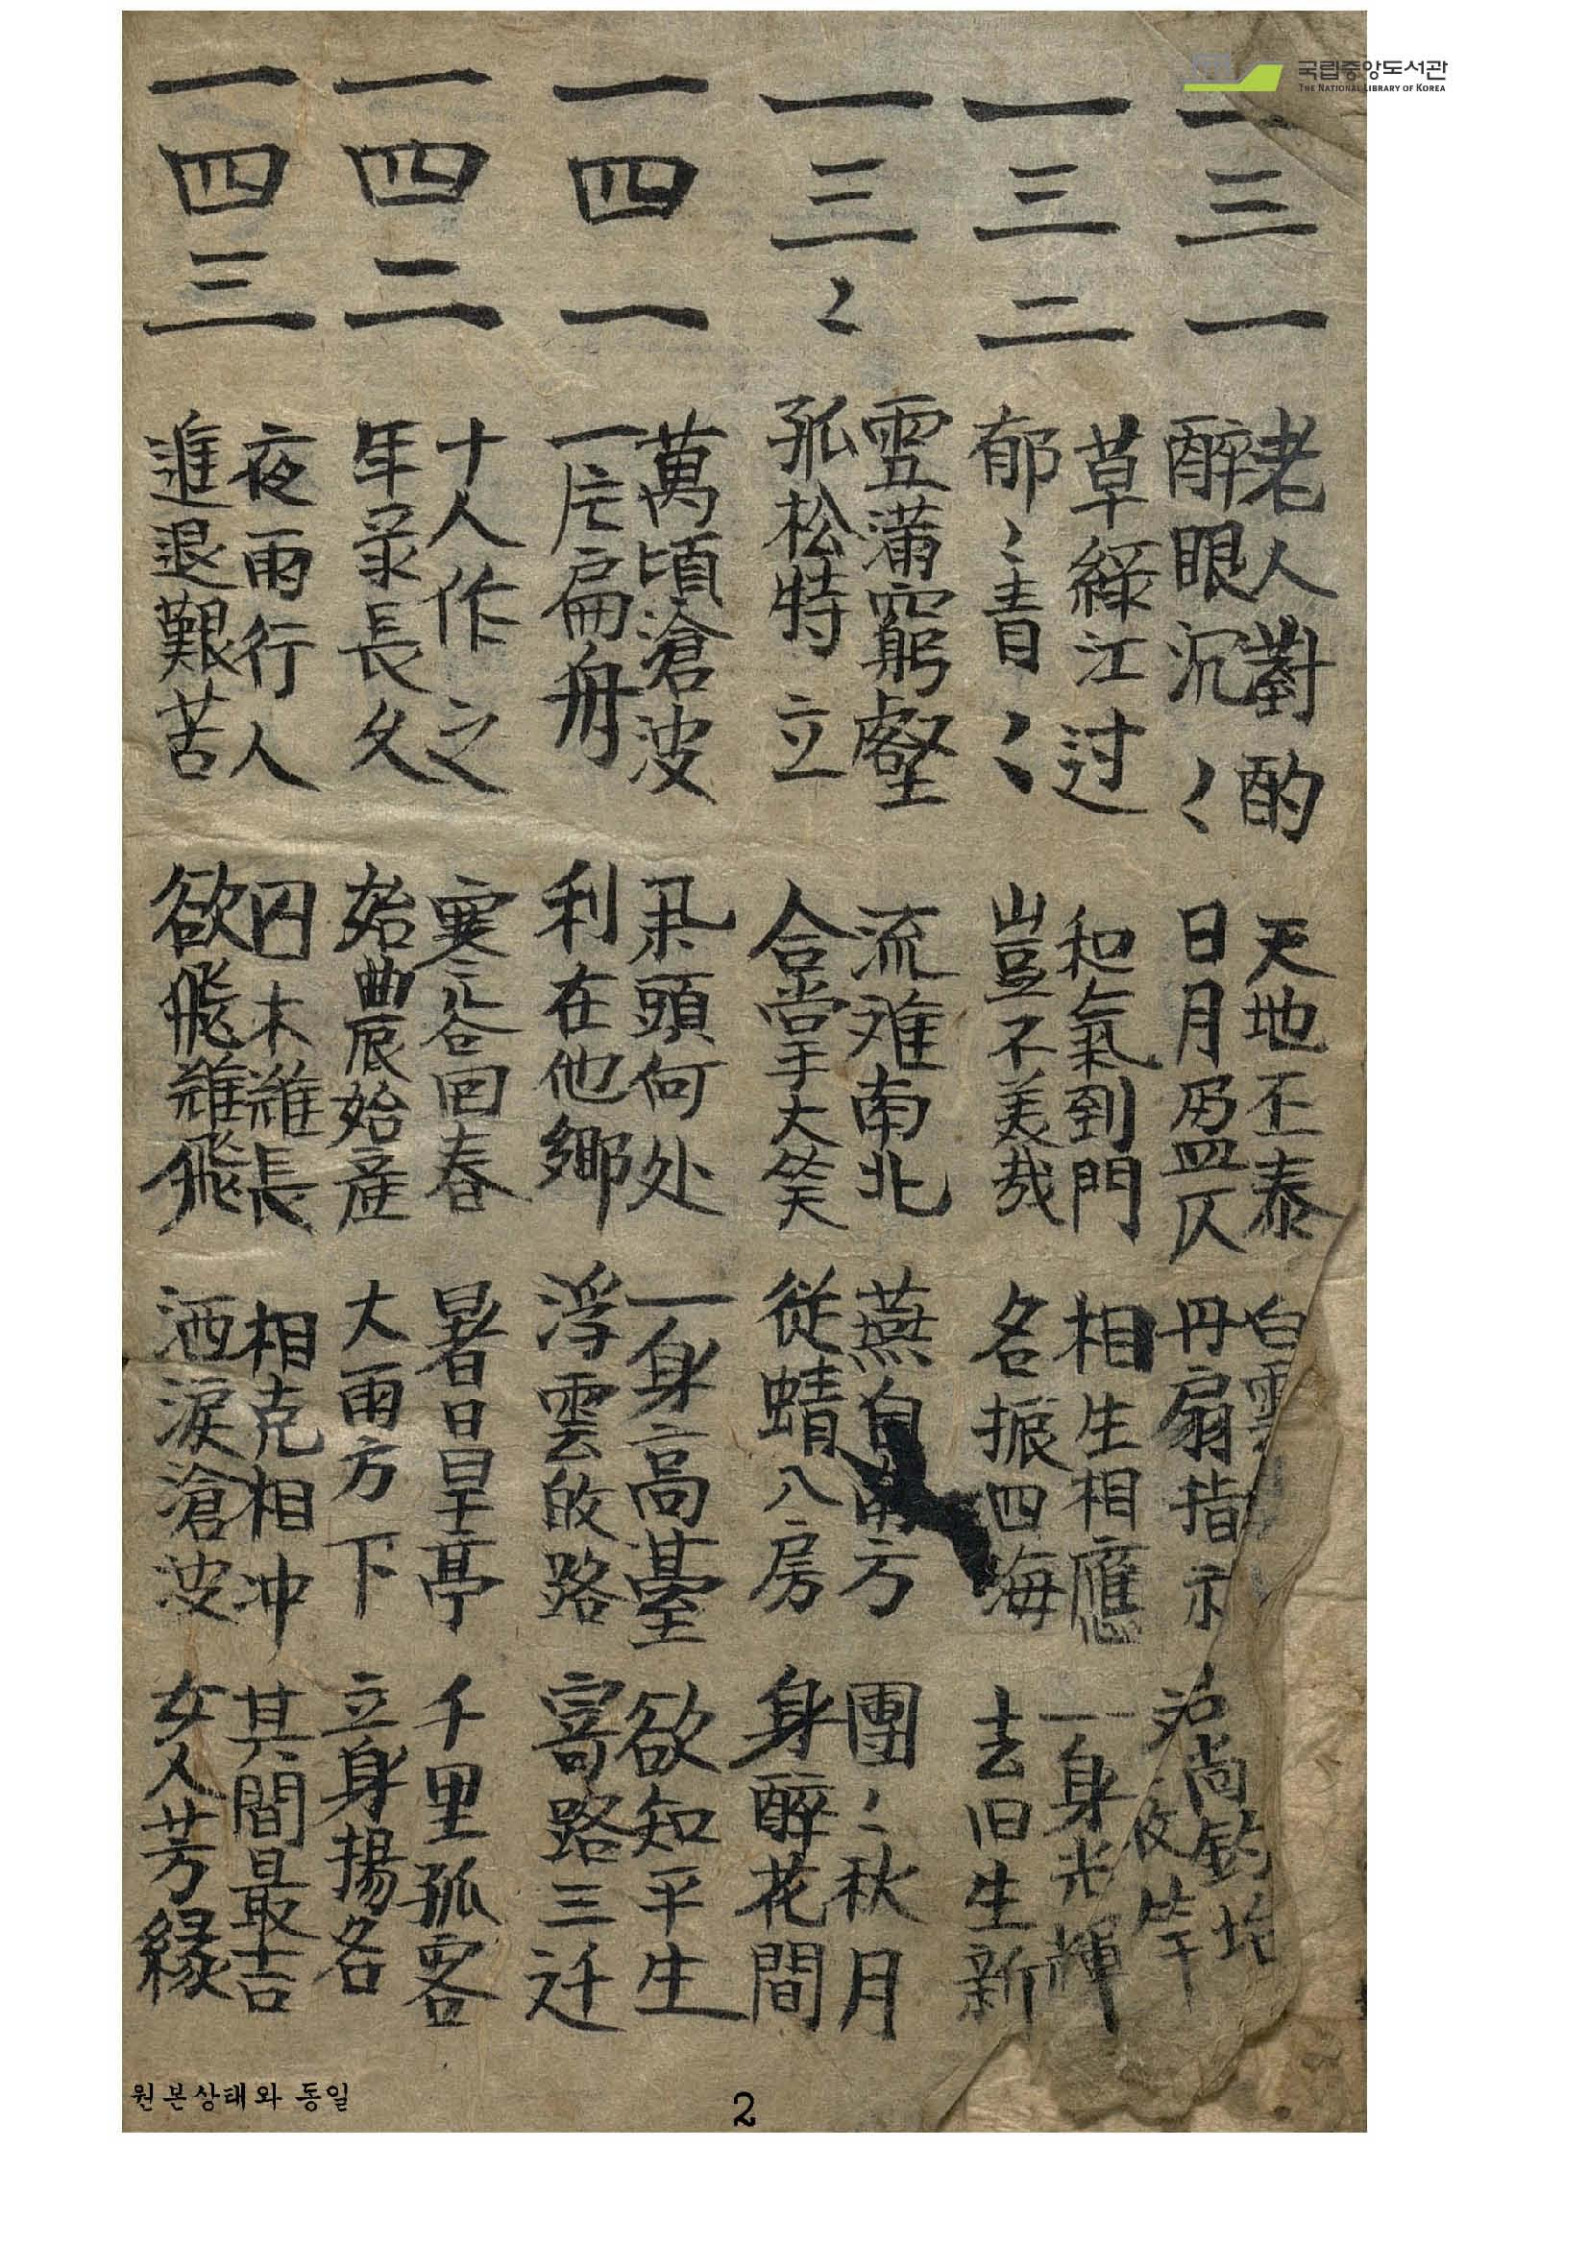 국립중앙도서관
THE NATIONAL LIBRARY OF KOREA
一三一
老人對酌 天地丕泰 白雲 尚釣
醉眼沉〻 日月盈仄 丹扇指示
一三二
草綠江过 和氣到門 相生相應 一身光輝
郁〻青〻 豈不美哉 名振四海 去旧生新
一三〻
雪滿窮壑 流难南北 燕自南方 團〻秋月
孤松特立 合掌大笑 從蜻八房 身醉花間
一四一
萬頃滄波 頭何处 一身高臺 欲知平生
一片扁舟 利在他鄉 浮雲的路 寄路三迁
一四二
十人作之 寒谷回春 暑日皇亭 千里孤客
年录長久 始農始産 大雨方下 立身揚名
一四三
夜雨行人 囚木難長 相克相冲 其間最吉
進退艱苦 欲飛難飛 洒淚滄波 女人芳緣
원본상태와 동일
2